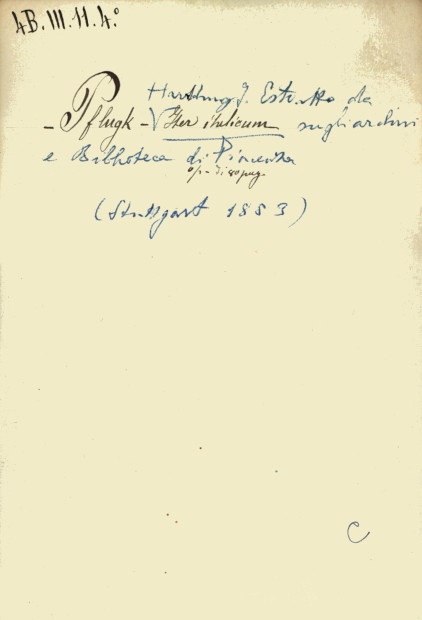 4B.III.11.4°
Harttung J. Estratto da
- Pflugk - Iter italicum sugli archivi
e Biblioteca di Piacenza
op. di 20 pag.
(Stuttgart 1883)
C